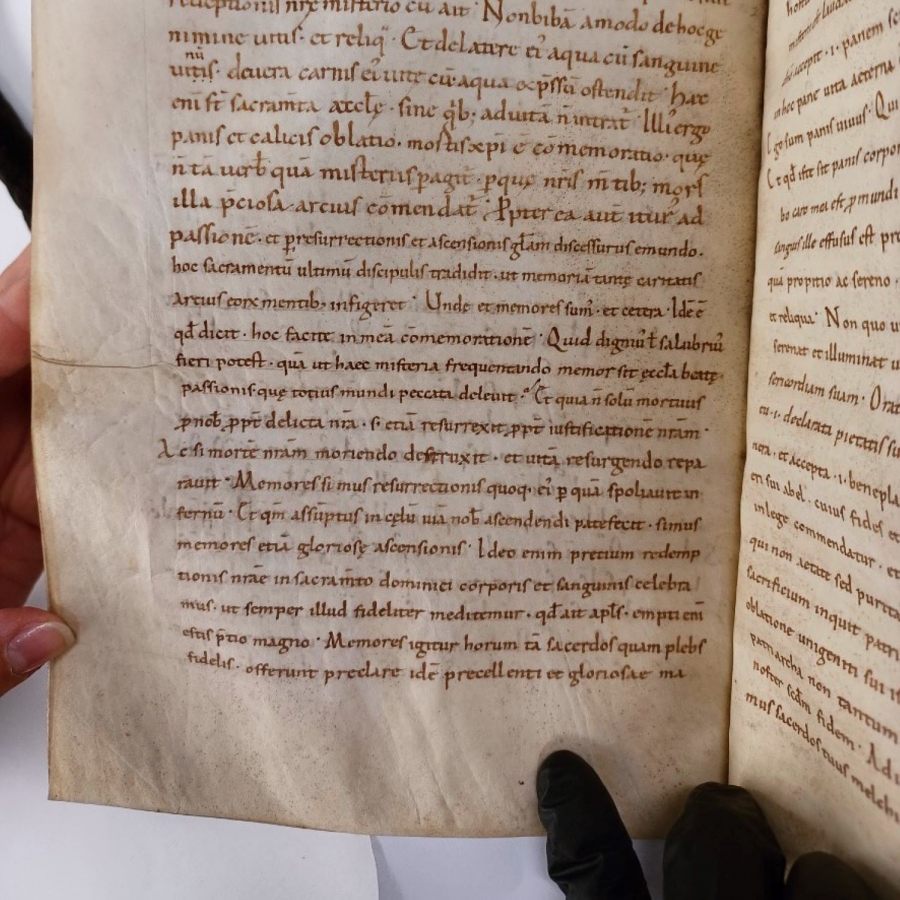 redēptionis nrę misterio cū ait · Non bibā amodo de hoc ge
nimine uitis · et reliq̄ · Et de latere ei' aqua cū sanguine
nū
uitis · de uera carnis ei' uite cū aqua exp̄ssū ostendit · Haec
eni st̄ sacram̄ta aecclę · sine q̄b; ad uitā n̄ intrat̄ · Illi' ergo
panis et calicis oblatio · mortis xp̄i ē cōmemoratio · quę
n̄ tā uerb̄ quā misteriis pagit̄ · p quę nr̄is m̄tib; mors
illa p̄ciosa artius cōmendat̄ · Ppter ea aut̄ itur' ad
passionē · et p resurrectionis et ascensionis gl̄am discessurus e mundo ·
hoc sacramentū ultimū discipulis tradidit · ut memoriā tantę caritatis
artius eorx mentib; infigeret · Unde et memores sum' · et cetera · Idē ē
qd̄ dicit · hoc facite in meā cōmemorationē · Quid digniu' t̄ salubriu'
fieri potest · quā ut haec misteria frequentando memor sit ęccl̄a beatę
passionis quę totius mundi peccata deleuit · Et quia n̄ solū mortuus
p nob̄ ppt̄ delicta nr̄a · s; etiā resurrexit ppt̄ iustificationē nr̄am ·
Ac si mortē nr̄am moriendo destruxit · et uitā resurgendo repa
rauit · Memores simus resurrectionis quoq; ei' p quā spoliauit in
fernū · Et qm̄ assuptus in cęlū uiā nob̄ ascendendi patefecit · simus
memores etiā gloriosę ascensionis · Ideo enim pretium redemp
tionis nr̄ae in sacram̄to dominici corporis et sanguinis celebra
mus · ut semper illud fideliter meditemur · qd̄ ait apl̄s · empti eni
estis p̄tio magno · Memores igitur horum tā sacerdos quam plebs
fidelis · offerunt preclare idē precellenti et gloriosae ma
accepit · i · panem
in hoc pane uita aeterna
Ego sum panis uiuus · Qui
Et qd̄ iste sit panis corpor
bo caro mea est p mundi
sanguis ille effusus est pr
quā propitio ac sereno ·
et reliqua · Non quo
serenat et illuminat
sericordiam suam · Orat
cū · i · declarati pietatis su
nera · et accepta · i · benepla
eri sui abel · cuius fides et
in lege commendatur · et
qui non aetate sed purita
sacrificium inquit patri
oblatione unigeniti sui
patriarcha non tantum
noster scdm̄ fidem · Ad
mus sacerdos tuus melchi